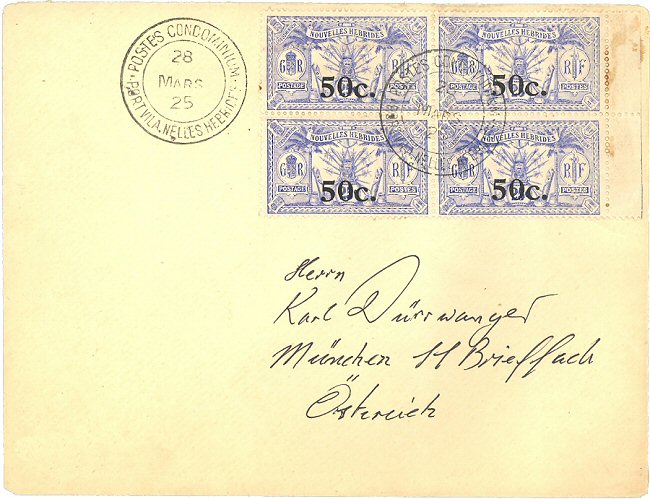 POSTES CONDOMINIUM
28
MARS
25
PORT VILA. NELLES HEBRIDES
NOUVELLES HEBRIDES
G R
R F
50c.
POSTAGE
POSTES
NOUVELLES HEBRIDES
G R
R F
50c.
POSTAGE
POSTES
NOUVELLES HEBRIDES
G R
R F
50c.
POSTAGE
POSTES
NOUVELLES HEBRIDES
G R
R F
50c.
POSTAGE
POSTES
MARS
Herrn
Karl Dürrwanger
München 11 Brieffach
Östereich